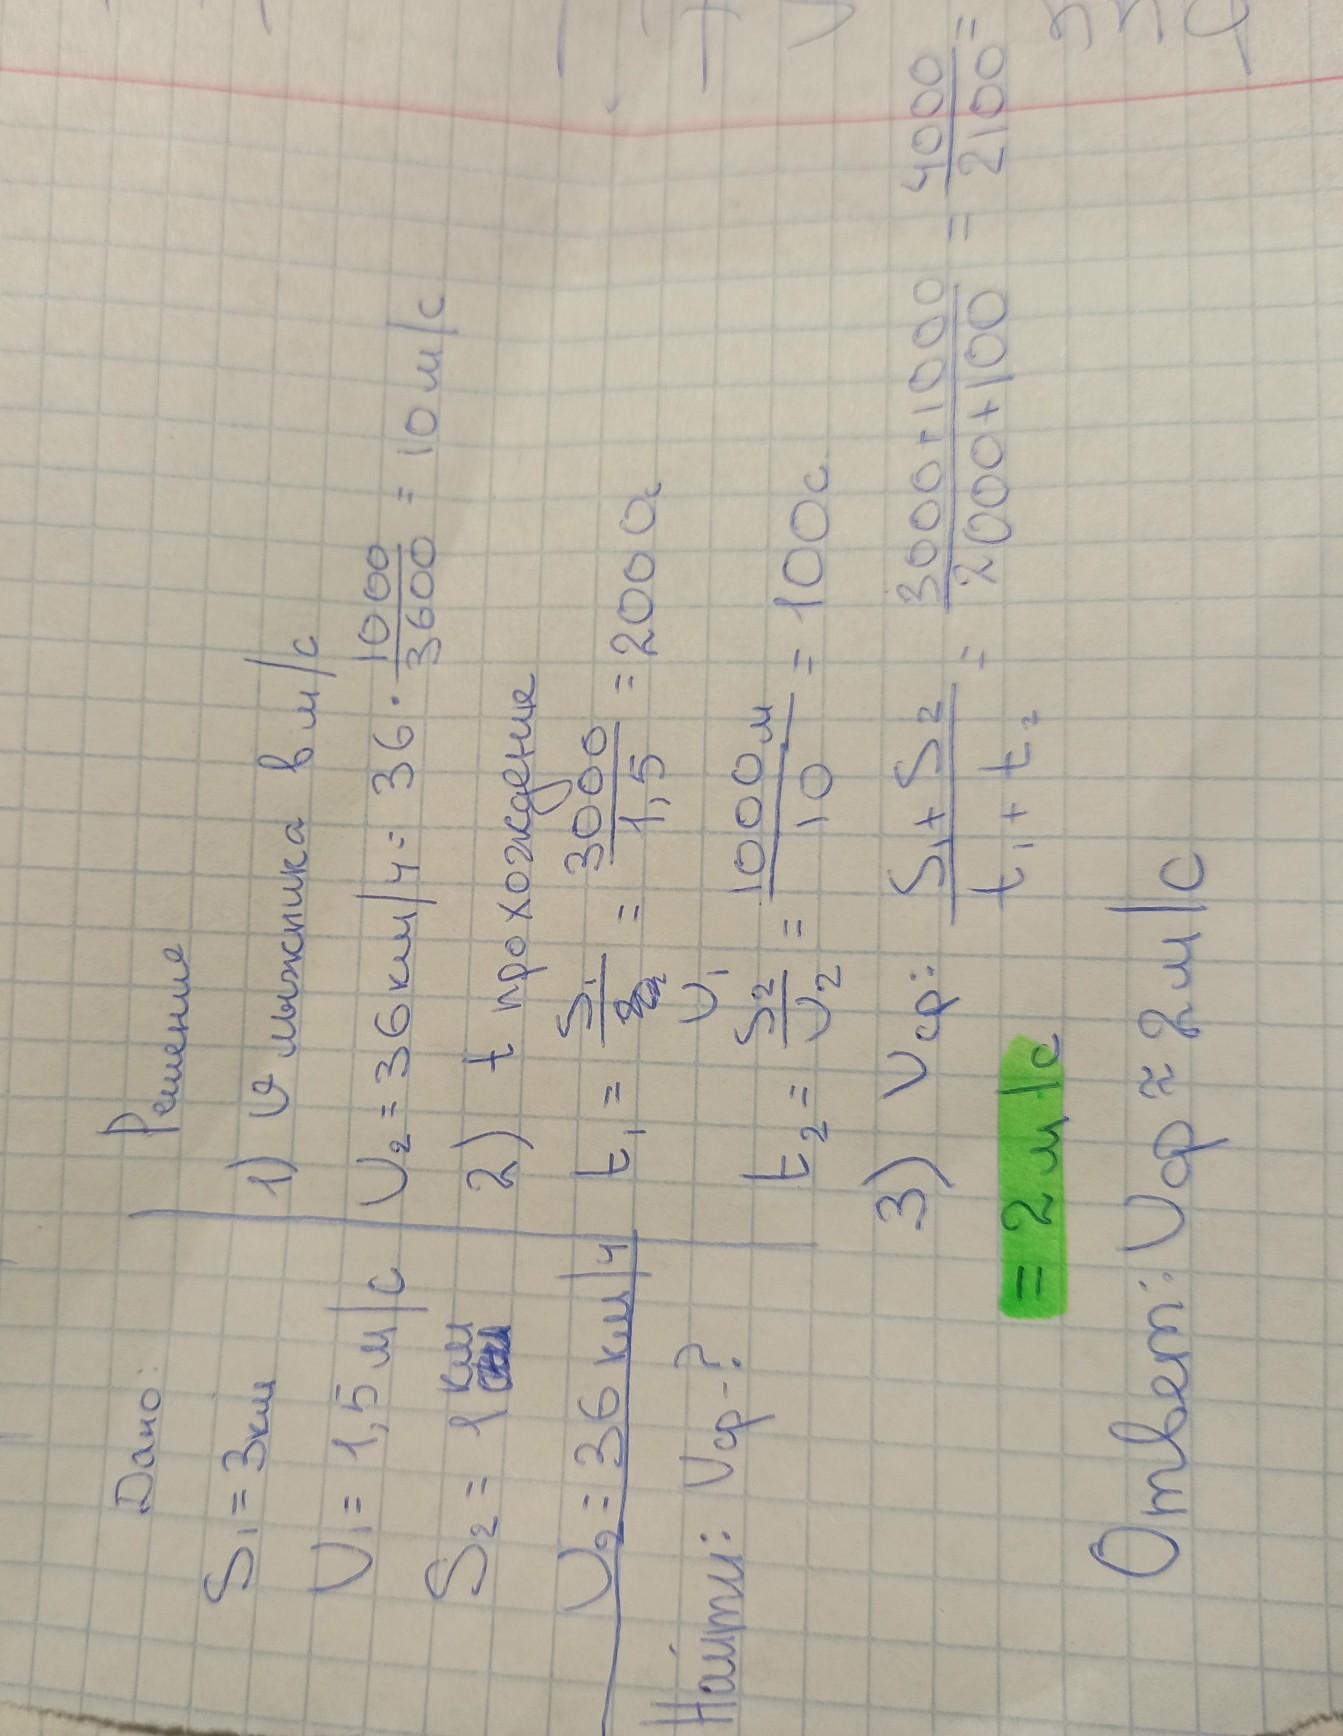 Дано:
S₁ = 3км
U₁ = 1,5 м/с
S₂ = 1 км
U₂ = 36 км/ч
Найти: Vср-?
Решение
1) υ лыжника в м/с
U₂ = 36 км/ч = 36 · 1000/3600 = 10 м/с
2) t прохождение
t₁ = S₁/U₁ = 3000/1,5 = 2000с
t₂ = S₂/U₂ = 1000м/10 = 100с
3) Vср: S₁+S₂/t₁+t₂ = 3000+1000/2000+100 = 4000/2100 =
= 2 м/с
Ответ: Vср ≈ 2 м/с